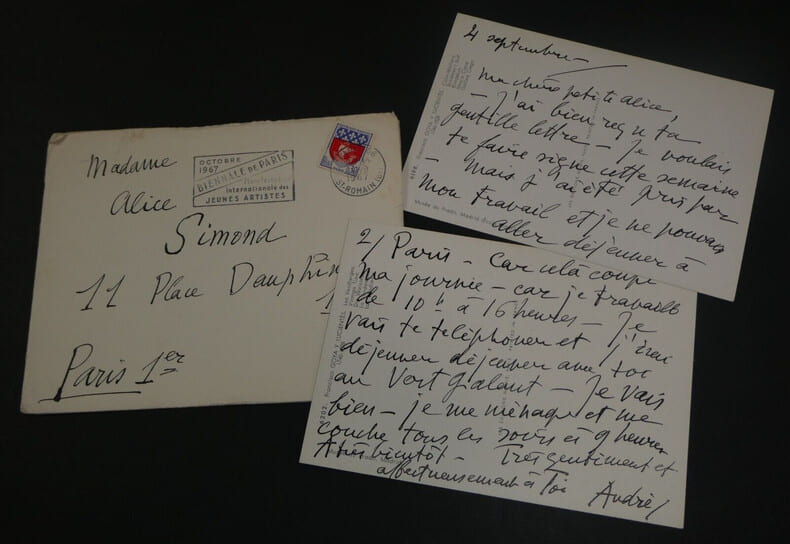 Madame
Alice
Simond
11 Place Dauphine
Paris 1er
OCTOBRE
1967
BIENNALE DE PARIS
Manifestation
internationale des
JEUNES ARTISTES
ST-ROMAIN
4 septembre -
ma chère petite alice,
- J'ai bien reçu ta
gentille lettre - Je voulais
te faire signe cette semaine
- mais j'ai été pris par
mon travail et je ne pouvais
aller déjeuner à
Musée du Prado, Madrid
2/ Paris - Car cela coupe
ma journée - car je travaille
de 10h à 16 heures - Je
vais te téléphoner et j'irai
déjeuner déjeuner avec toi
au Vert galant - Je vais
bien - je me ménage et me
couche tous les soirs à 9 heures
A très bientôt - Très gentiment et
affectueusement à Toi André
Francisco GOYA Y LUCIENTES